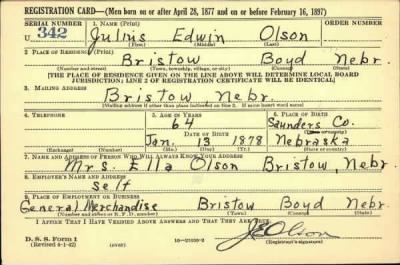 REGISTRATION CARD—(Men born on or after April 28, 1877 and on or before February 16, 1897)
SERIAL NUMBER 1. NAME (Print)
U 342 Julius Edwin Olson
(First) (Middle) (Last)
2. PLACE OF RESIDENCE (Print)
Bristow Boyd Nebr.
(Number and street) (Town, township, village, or city) (County) (State)
[THE PLACE OF RESIDENCE GIVEN ON THE LINE ABOVE WILL DETERMINE LOCAL BOARD
JURISDICTION; LINE 2 OF REGISTRATION CERTIFICATE WILL BE IDENTICAL]
3. MAILING ADDRESS
Bristow, Nebr.
[Mailing address if other than place indicated on line 2. If same insert word same]
4. TELEPHONE 5. AGE IN YEARS 6. PLACE OF BIRTH
64 Saunders Co.
DATE OF BIRTH (Town or county)
Jan. 13 1878 Nebraska
(Exchange) (Number) (Mo.) (Day) (Yr.) (State or country)
7. NAME AND ADDRESS OF PERSON WHO WILL ALWAYS KNOW YOUR ADDRESS
Mrs. Ella Olson Bristow, Nebr.
8. EMPLOYER'S NAME AND ADDRESS
Self
9. PLACE OF EMPLOYMENT OR BUSINESS
General Merchandise Bristow Boyd Nebr.
(Number and street or R. F. D. number) (Town) (County) (State)
I AFFIRM THAT I HAVE VERIFIED ABOVE ANSWERS AND THAT THEY ARE TRUE.
D. S. S. Form 1
(Revised 4-1-42) (over) J E Olson
(Registrant's signature)